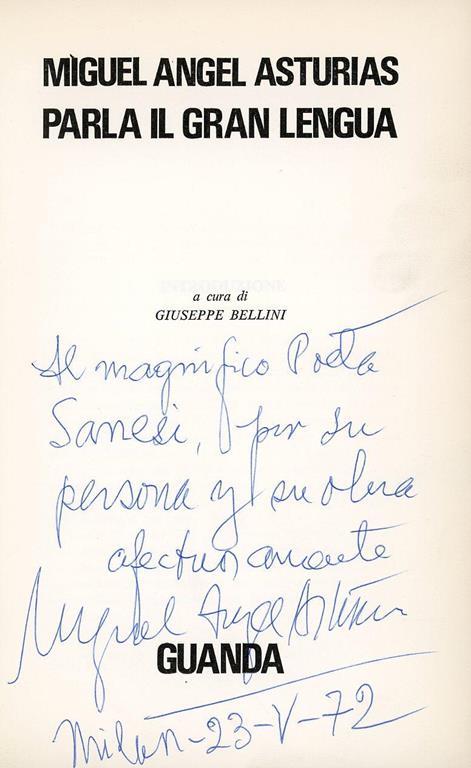 MIGUEL ANGEL ASTURIAS
PARLA IL GRAN LENGUA
INTRODUZIONE
a cura di
GIUSEPPE BELLINI
Al magnífico Poeta
Sanesi, por su
persona y su obra
afectuosamente
Miguel Angel Asturias
GUANDA
Milan-23-V-72